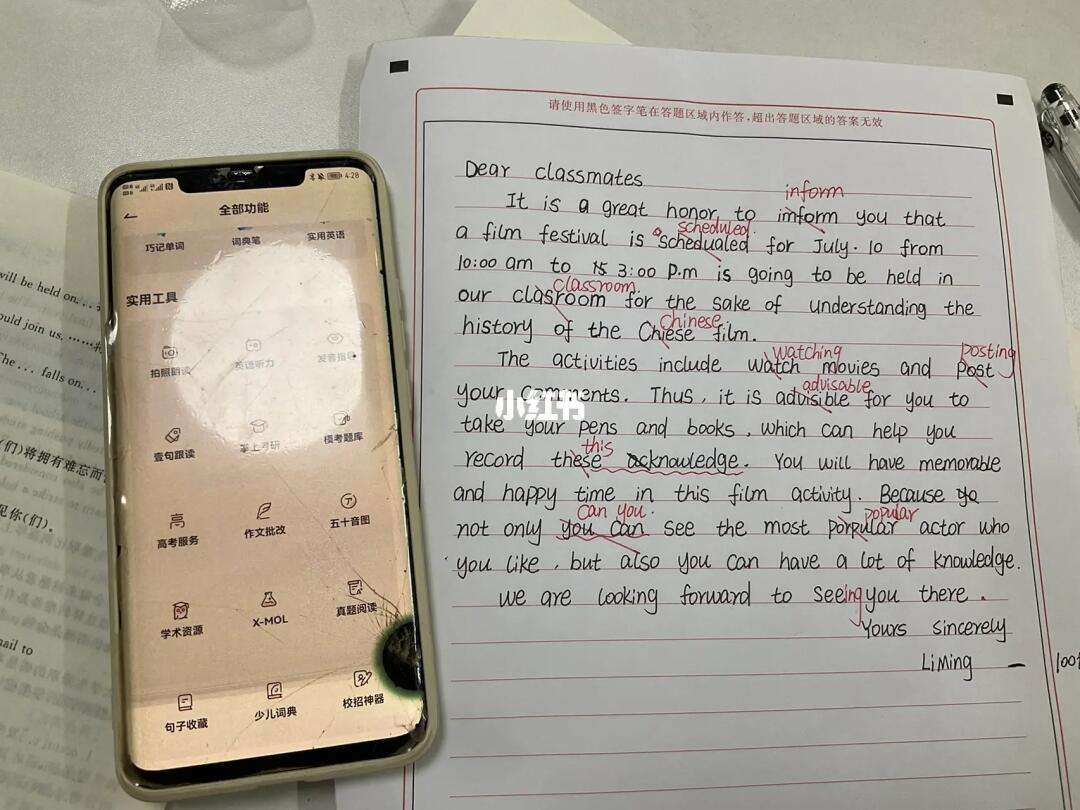 4:28
全部功能
巧记单词 词典笔 实用英语
实用工具
拍照翻译 英语听力 发音指导
壹句跟读 掌上考研 模考题库
高考服务 作文批改 五十音图
学术资源 X-MOL 真题阅读
句子收藏 少儿词典 校招神器
will be held on...
ould join us, ......
The... falls on...
(们)将拥有难忘而
见你(们)。
mail to
小红书
请使用黑色签字笔在答题区域内作答,超出答题区域的答案无效
Dear classmates
inform
It is a great honor to imform you that
scheduled.
a film festival is schedualed for July. 10 from
10:00 am to 3:00 P.m is going to be held in
classroom
our clasroom for the sake of understanding the
Chinese
history of the Chiese film.
watching posting
The activities include watch movies and post
advisable
your comments. Thus, it is advisible for you to
take your pens and books, which can help you
this
record these acknowledge. You will have memorable
and happy time in this film activity. Because yo
can you. popular
not only you can see the most porpular actor who
you like, but also you can have a lot of knowledge.
We are looking forward to seeing you there.
Yours sincerely
LiMing